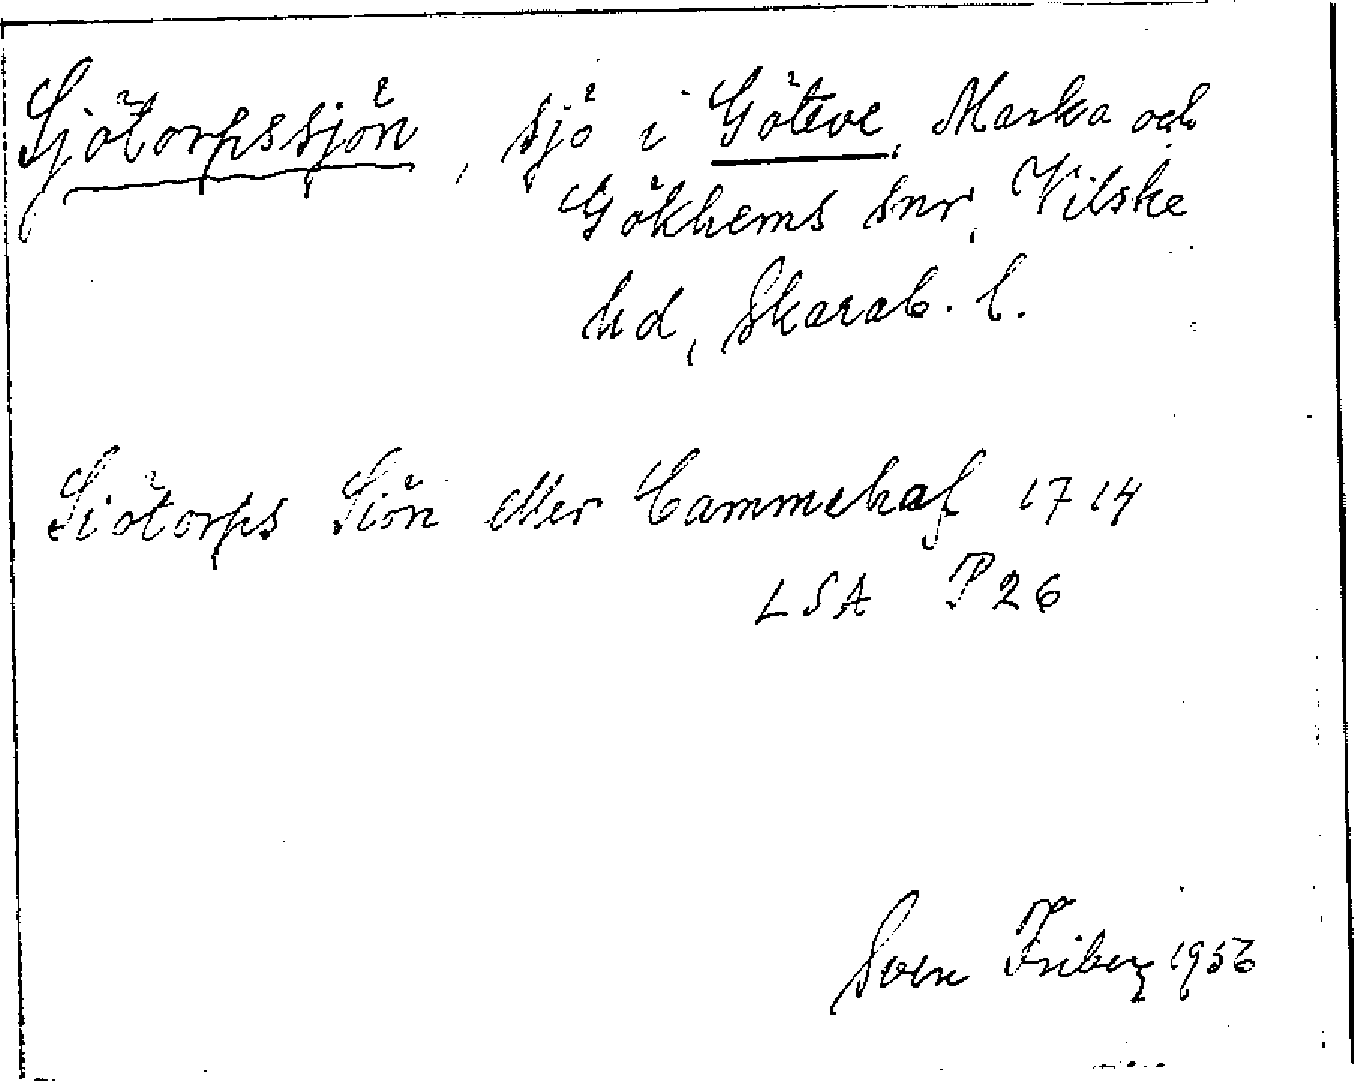 Sjötorpssjön, sjö i Göteve, Marka och
Gökhems snr, Vilske
hd, Skarab. l.
Siötorps Siön eller Cammehaf 1714
LSA P 26
Sven Friberg 1956